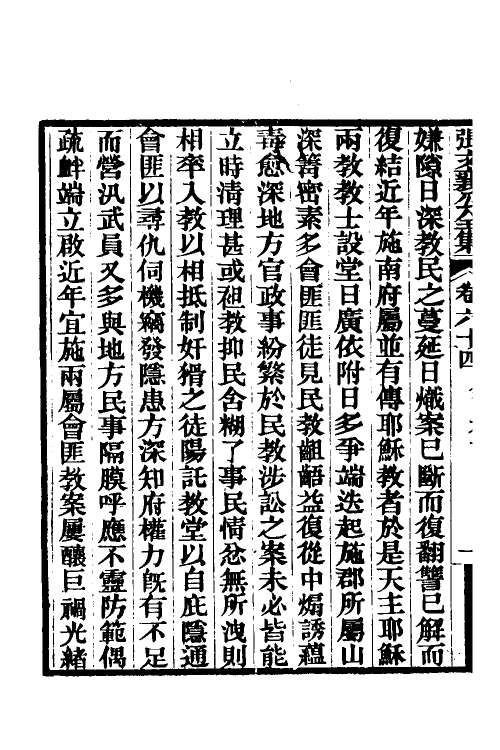 張文襄公全集 卷六十四
嫌隙日深教民之蔓延日熾案已斷而復翻讐已解而
復結近年施南府屬並有傳耶穌教者於是天主耶穌
兩教教士設堂日廣依附日多爭端迭起施郡所屬山
深箐密素多會匪匪徒見民教齟齬益復從中煽誘蘊
毒愈深地方官政事紛繁於民教涉訟之案未必皆能
立時清理甚或袒教抑民含糊了事民情忿無所洩則
相率入教以相抵制奸猾之徒陽託教堂以自庇隱通
會匪以尋仇伺機竊發隱患方深知府權力旣有不足
而營汛武員又多與地方民事隔膜呼應不靈防範偶
疏衅端立啟近年宜施兩屬會匪教案屢釀巨禍光緒